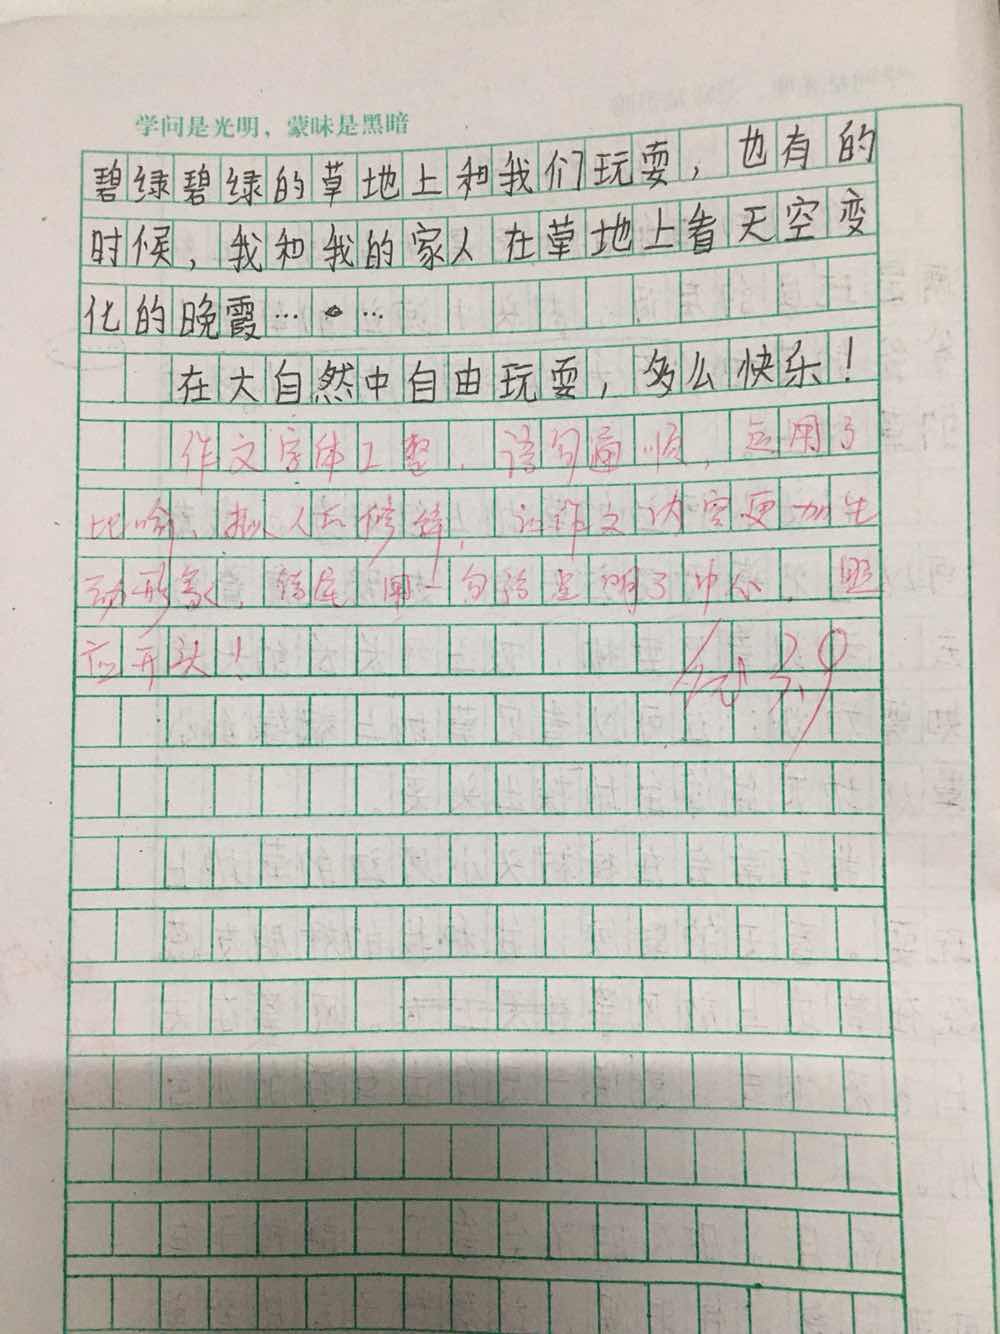 学问是光明，蒙昧是黑暗
碧绿碧绿的草地上和我们玩耍，也有的
时候，我和我的家人在草地上看天空变
化的晚霞……
在大自然中自由玩耍，多么快乐！
作文字体工整，语句通顺，运用了
比喻、拟人的修辞，让作文内容更加生
动形象，结尾用一句话点明了中心，照
应开头！